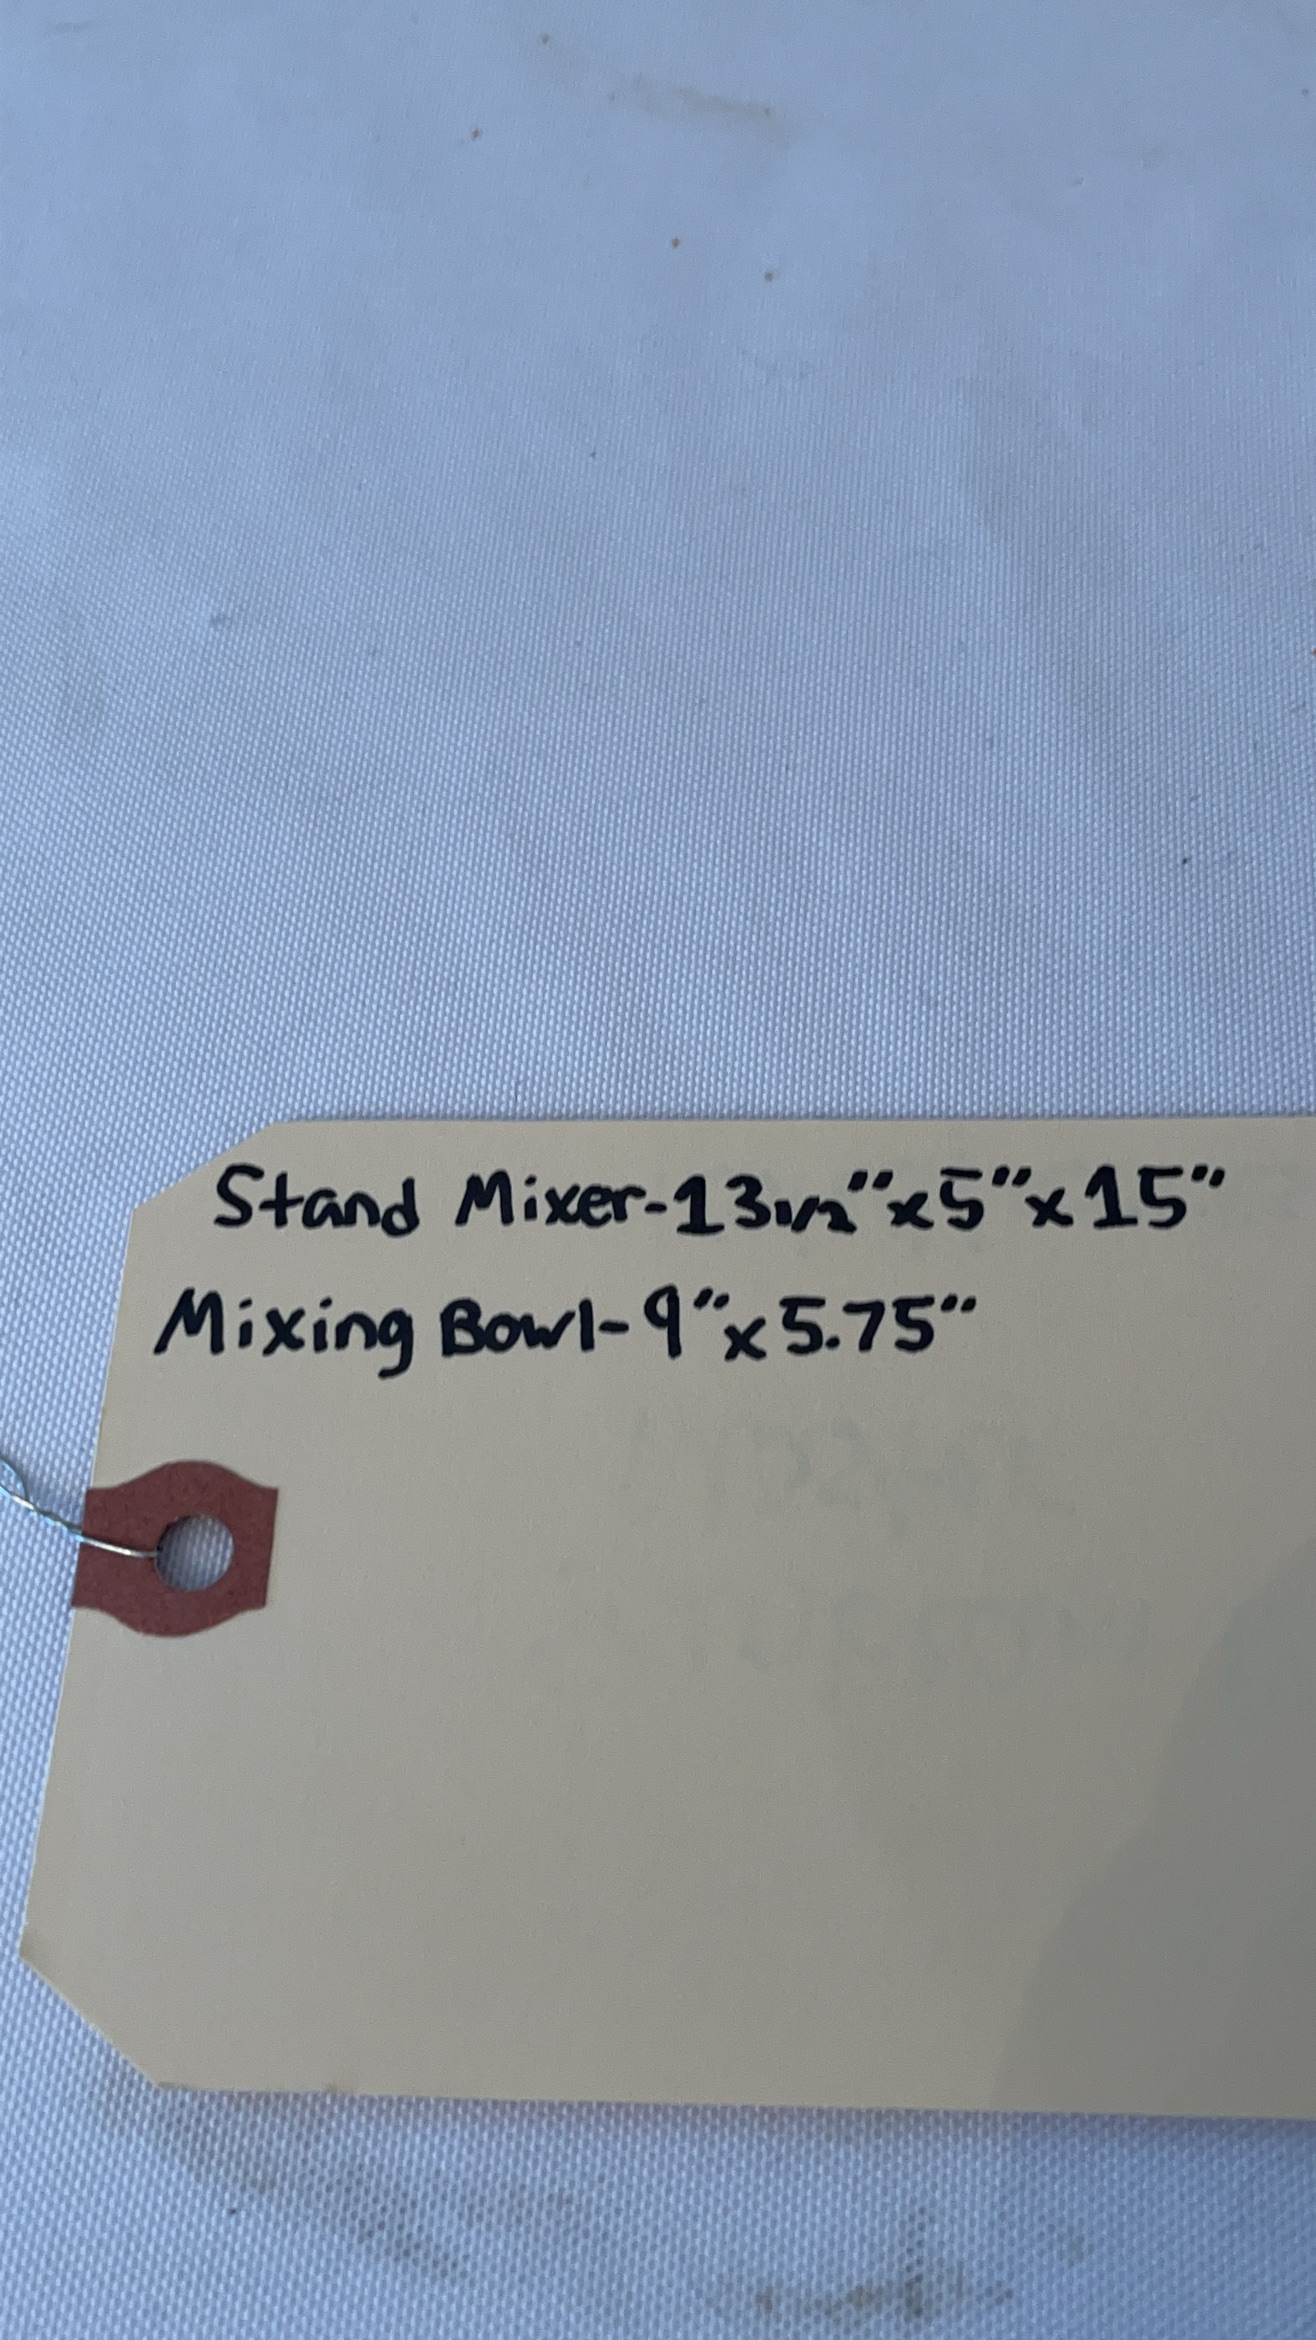 Stand Mixer-13 1/2"x5"x15"
Mixing Bowl-9"x5.75"